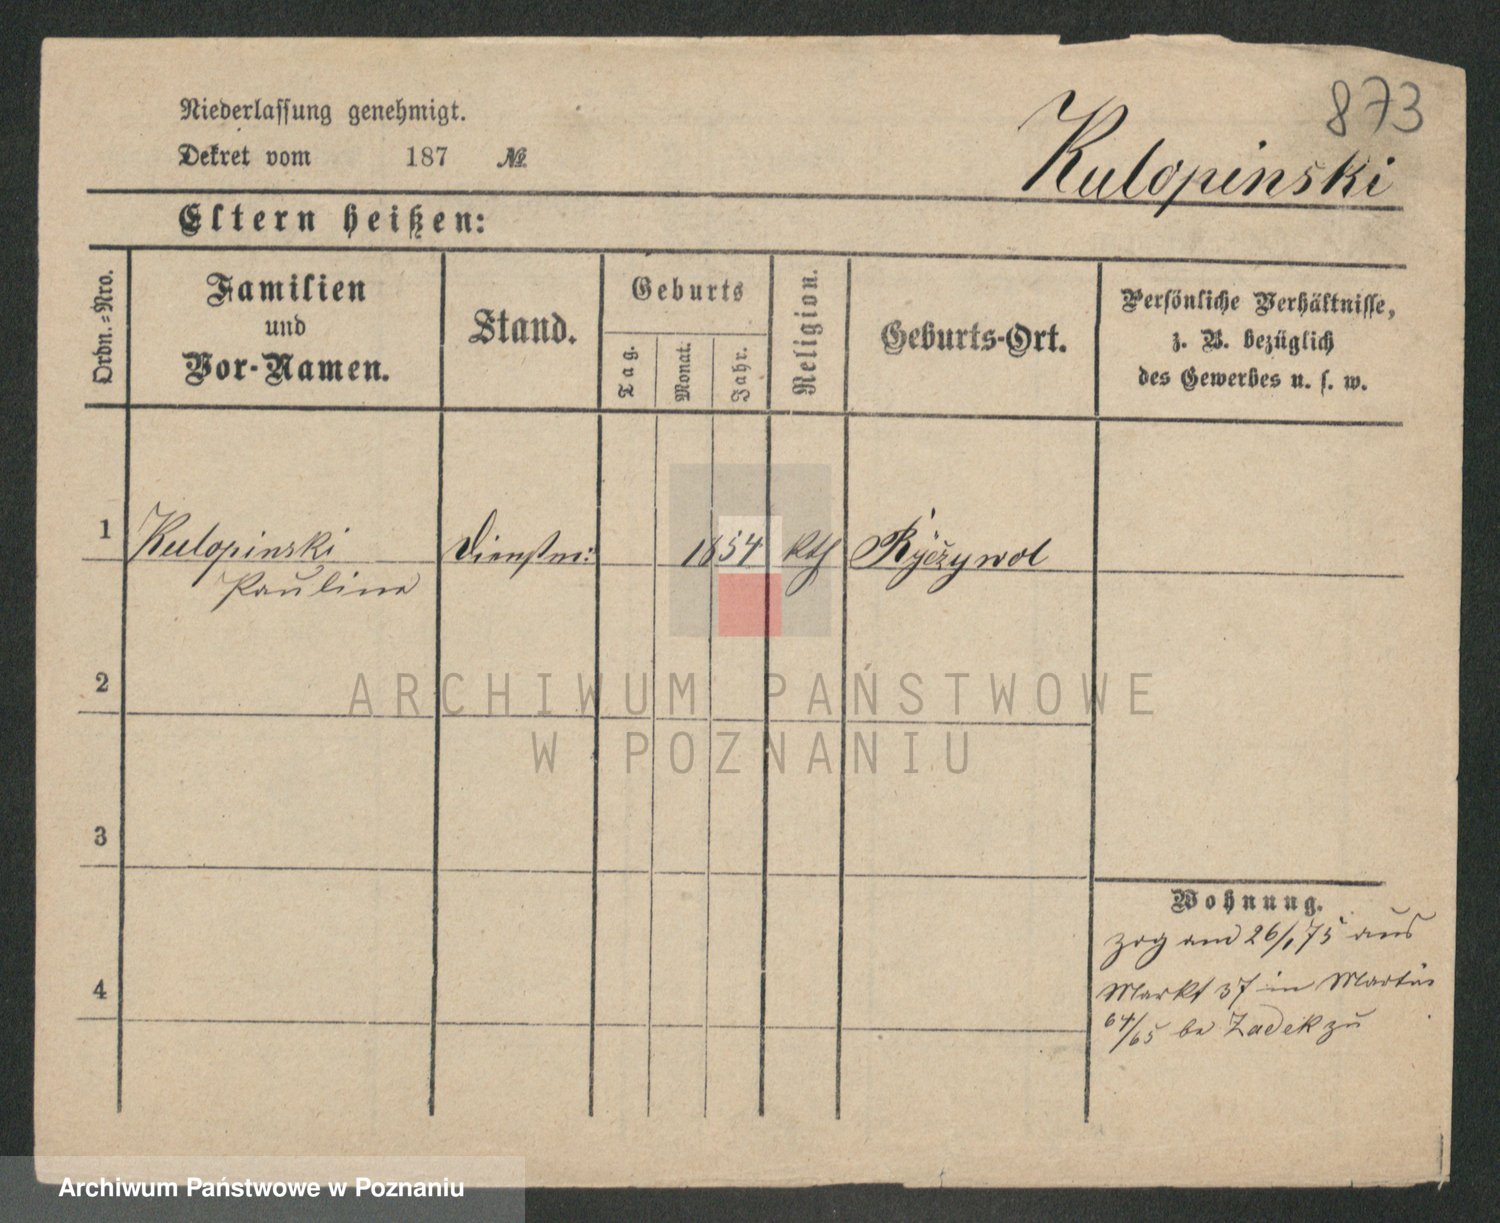 873
Niederlassung genehmigt.
Dekret vom 187 №
Kulopinski
Eltern heißen:
Ordn.-Nro.
Familien
und
Vor-Namen.
Stand.
Geburts
Tag.
Monat.
Jahr.
Religion.
Geburts-Ort.
Persönliche Verhältnisse,
z. B. bezüglich
des Gewerbes u. s. w.
1 Kulopinski Dienstm: 1854 kth Ryczywol
Paulina
2
ARCHIWUM PAŃSTWOWE
W POZNANIU
3
Wohnung.
zog am 26/1 75 aus
4
Markt 37 in Martin
64/65 be Zadek zu
Archiwum Państwowe w Poznaniu